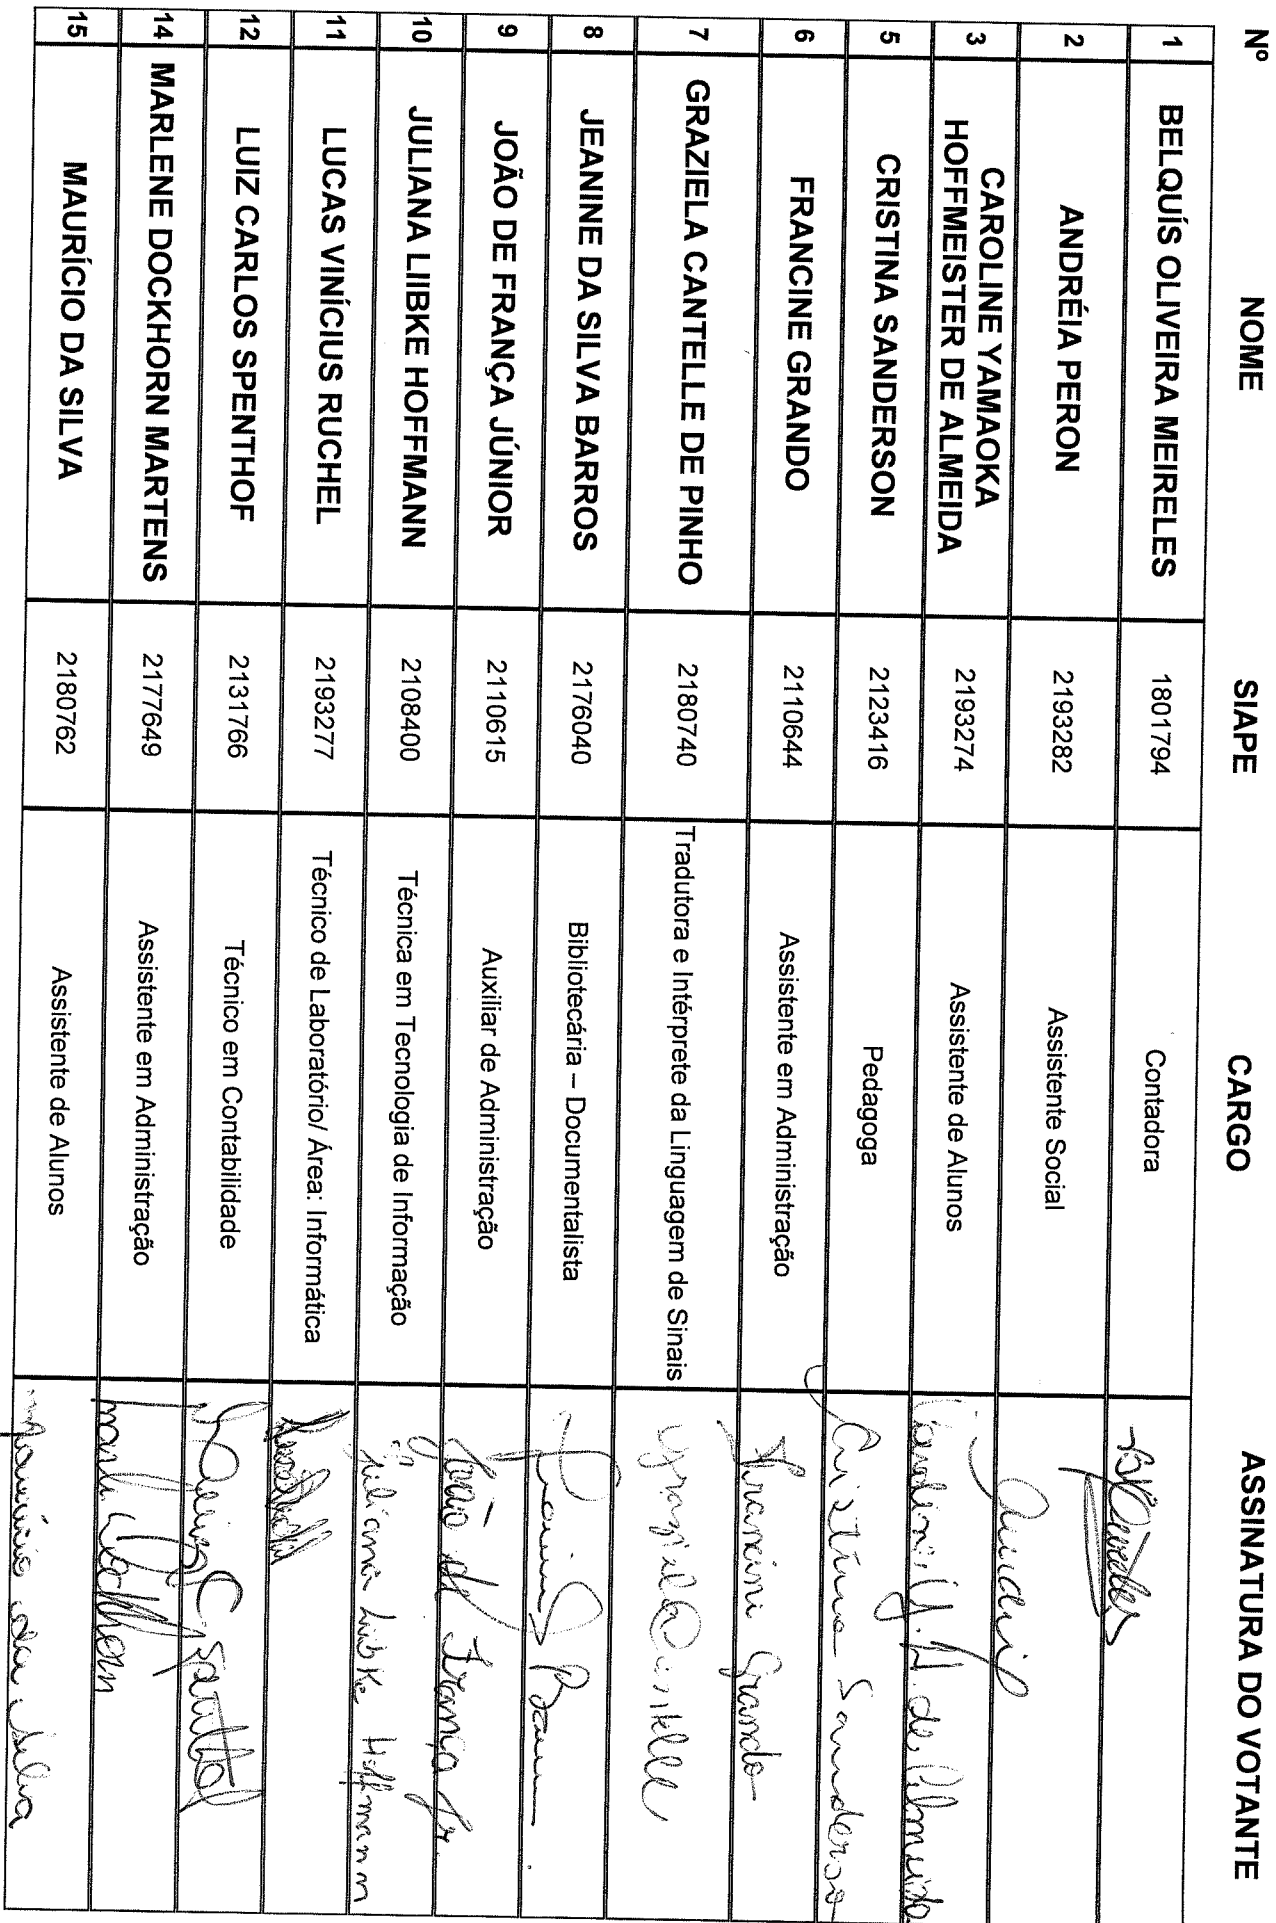 Nº NOME SIAPE CARGO ASSINATURA DO VOTANTE
1 BELQUÍS OLIVEIRA MEIRELES 1801794 Contadora
2 ANDRÉIA PERON 2193282 Assistente Social
3 CAROLINE YAMAOKA
HOFFMEISTER DE ALMEIDA 2193274 Assistente de Alunos Caroline Y. H. de Almeida
5 CRISTINA SANDERSON 2123416 Pedagoga Cristina Sanderson
6 FRANCINE GRANDO 2110644 Assistente em Administração Francini Grando
7 GRAZIELA CANTELLE DE PINHO 2180740 Tradutora e Intérprete da Linguagem de Sinais Graziela Cantelle
8 JEANINE DA SILVA BARROS 2176040 Bibliotecária – Documentalista
9 JOÃO DE FRANÇA JÚNIOR 2110615 Auxiliar de Administração João de França Jr.
10 JULIANA LIIBKE HOFFMANN 2108400 Técnica em Tecnologia de Informação Juliana Liibke Hoffmann
11 LUCAS VINÍCIUS RUCHEL 2193277 Técnico de Laboratório/ Área: Informática
12 LUIZ CARLOS SPENTHOF 2131766 Técnico em Contabilidade
14 MARLENE DOCKHORN MARTENS 2177649 Assistente em Administração
15 MAURÍCIO DA SILVA 2180762 Assistente de Alunos Maurício da Silva